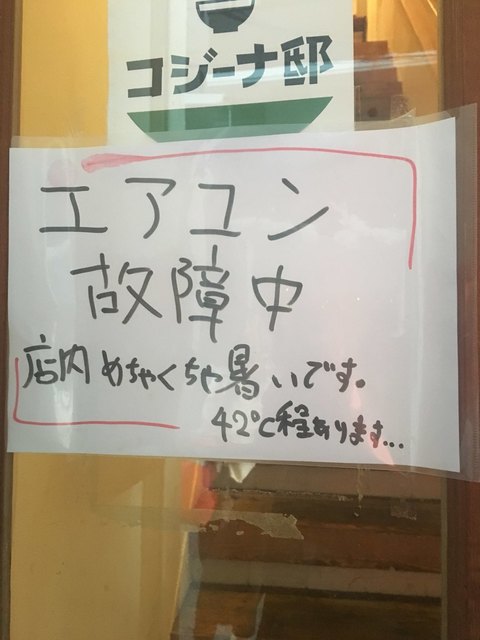 コジーナ邸
エアコン
故障中
店内めちゃくちゃ暑いです。
42℃程あります...